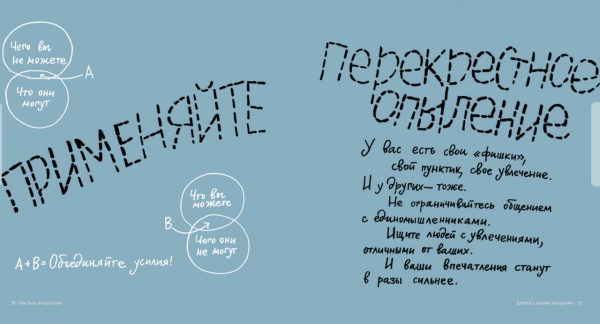 Чего вы
не можете
A
Что они
могут
ПРИМЕНЯЙТЕ
Что вы
можете
B
Чего они
не могут
A+B=Объединяйте усилия!
перекрестное
опыление
У вас есть свои «фишки»,
свой пунктик, свое увлечение.
И у других — тоже.
Не ограничивайтесь общением
с единомышленниками.
Ищите людей с увлечениями,
отличными от ваших.
И ваши впечатления станут
в разы сильнее.
Как быть интересным
Делитесь своими находками